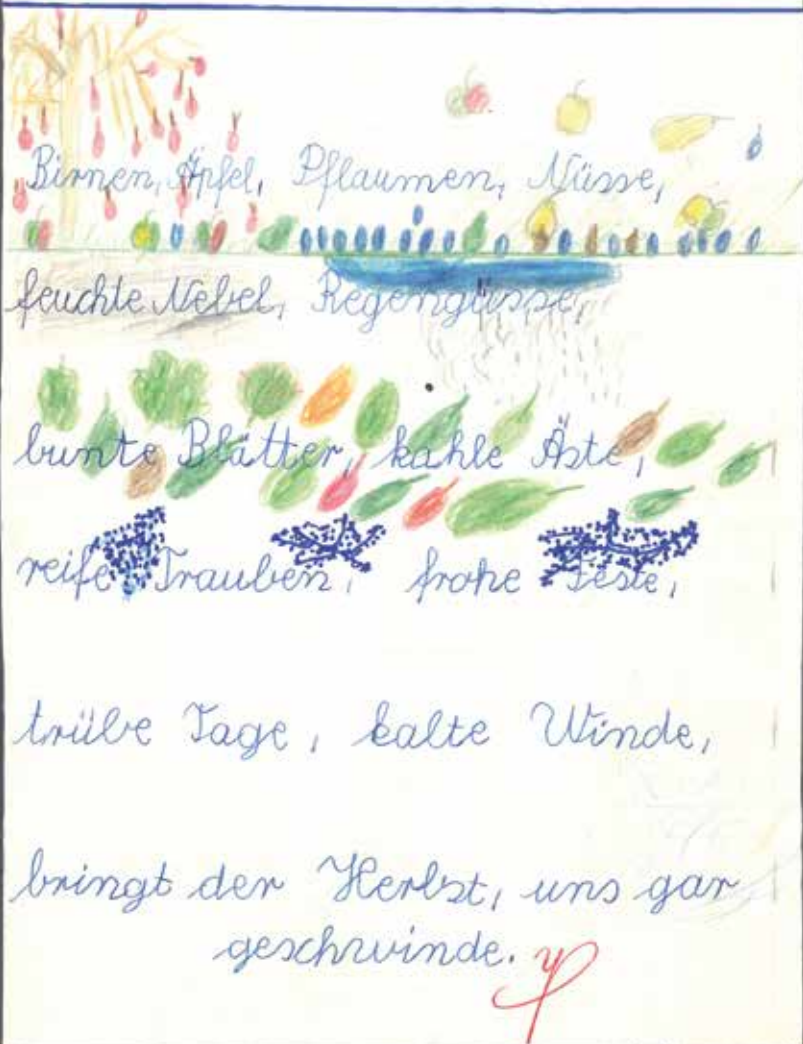 Birnen, Äpfel, Pflaumen, Nüsse,
feuchte Nebel, Regengüsse,
bunte Blätter, kahle Äste,
reife Trauben, frohe Feste,
trübe Tage, kalte Winde,
bringt der Herbst, uns gar
geschwinde.